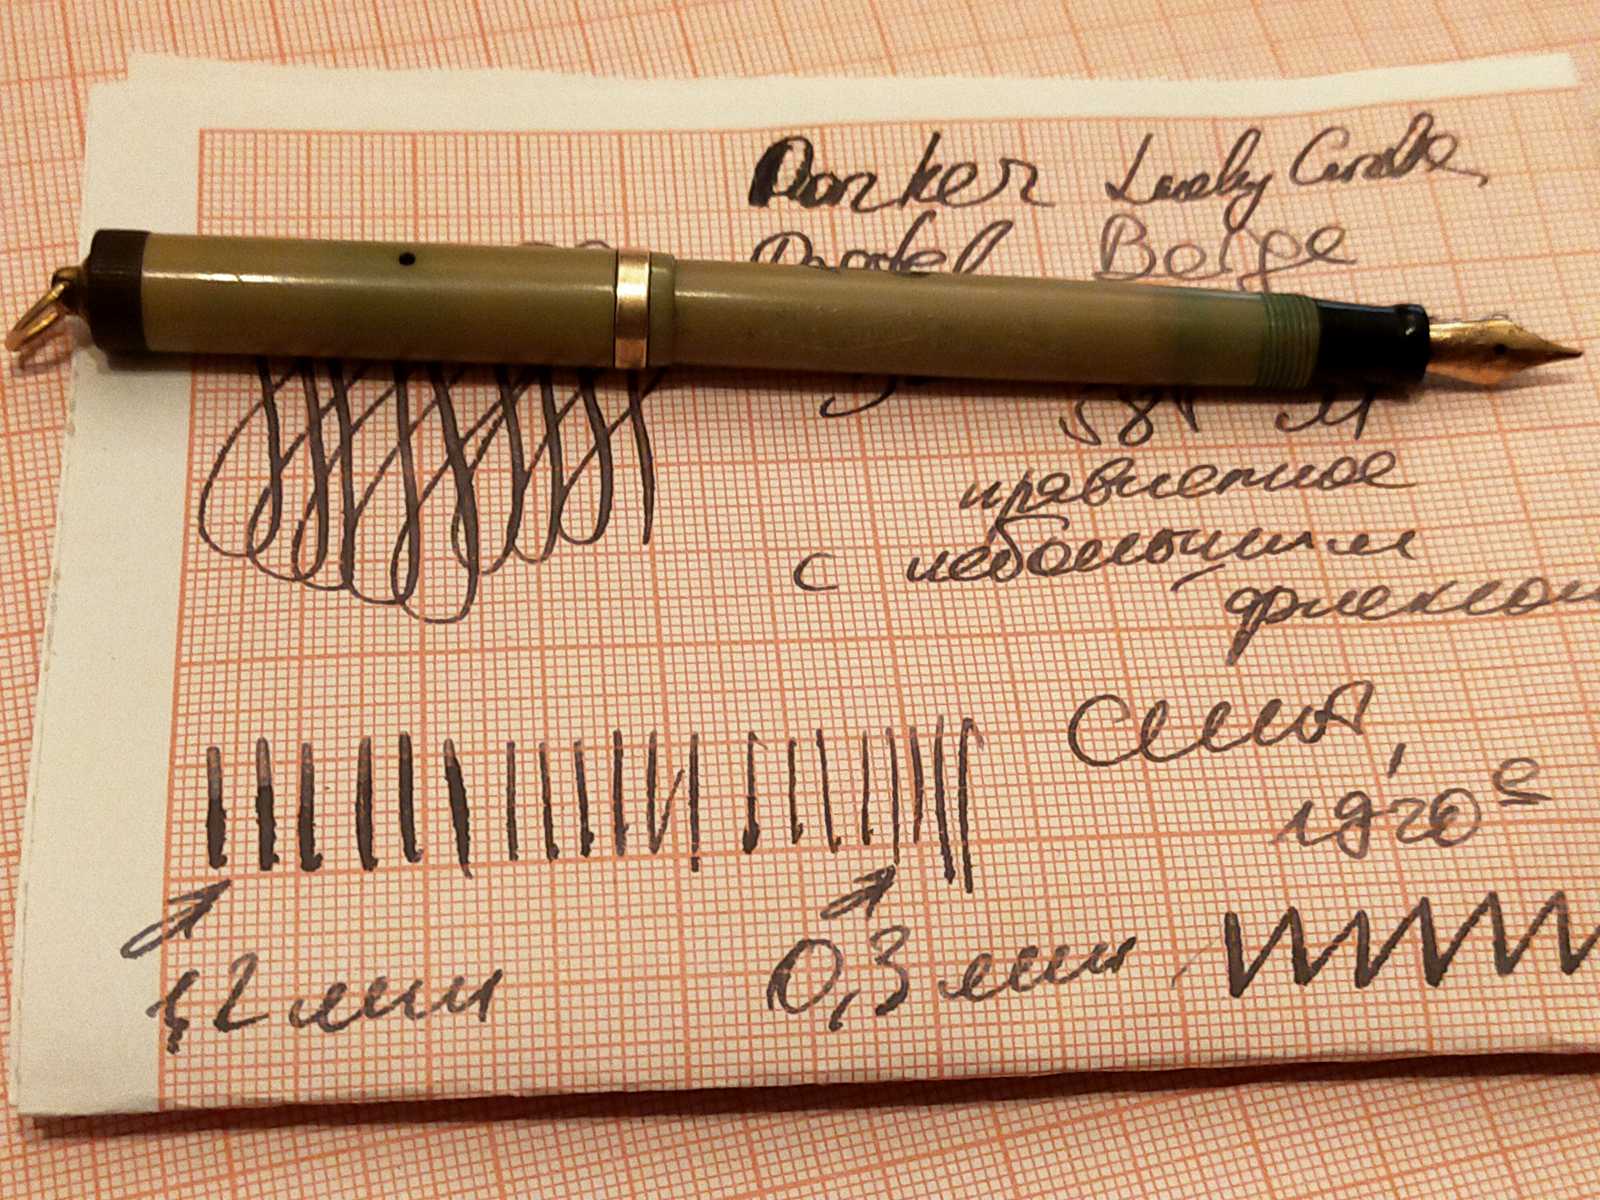 Parker Lucky Curve,
Pastel Beige
585 M
правленное
с небольшим
флексом
США,
1920е
1,2 мм
0,3 мм